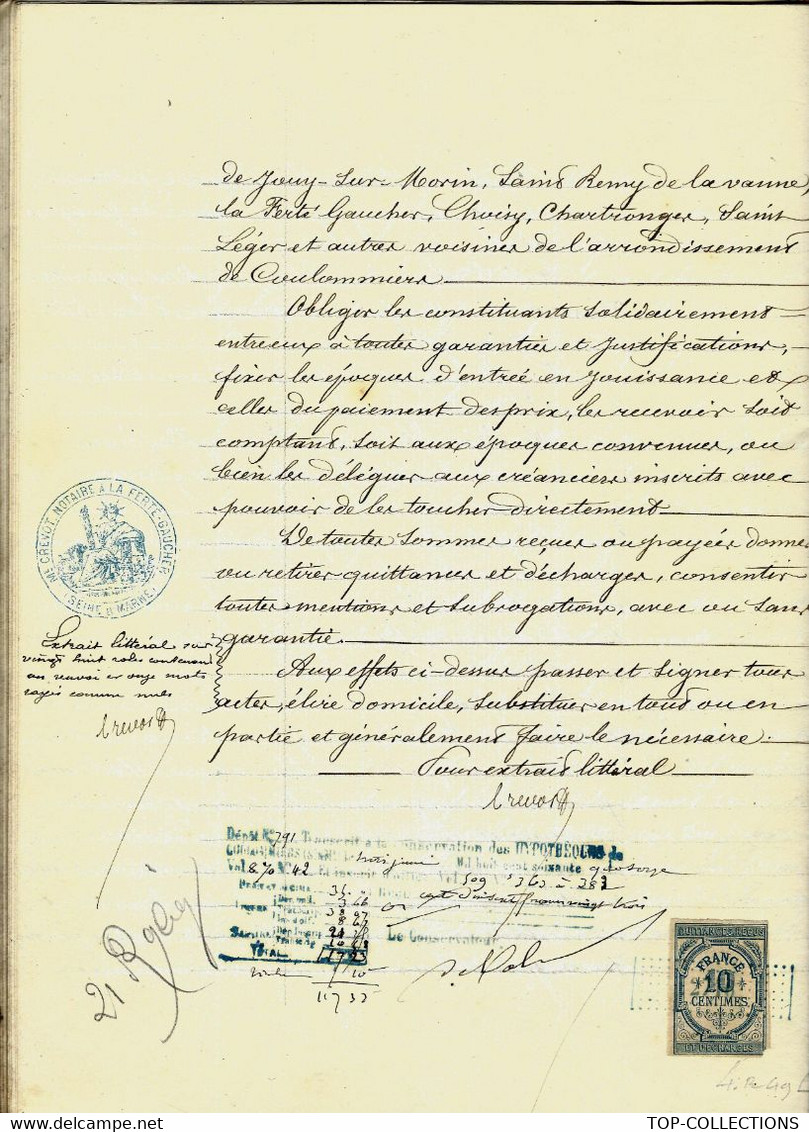 de Jouy-sur-Morin, Saint Remy de la vanne,
la Ferté Gaucher, Choisy, Chartronges, Saint
Léger et autres voisines de l'arrondissement
de Coulommiers
Obliger les constituants solidairement
entre eux à toutes garanties et justifications,
fixer les époques d'entrée en jouissance et
celles du paiement des prix, les recevoir soit
comptant, soit aux époques convenues, ou
bien les déléguer aux créanciers inscrits avec
pouvoir de les toucher directement
De toutes sommes reçues ou payées donner
ou retirer quittances et décharges, consentir
toutes mentions et subrogations, avec ou sans
garantie.
Aux effets ci-dessus passer et signer tous
actes, élire domicile, substituer en tout ou en
partie et généralement faire le nécessaire.
Pour extrait littéral
Crevot
Mᵉ CREVOT, NOTAIRE A LA FERTÉ-GAUCHER
(SEINE & MARNE)
Extrait littéral sur
vingt huit rôles contenant
un renvoi et onze mots
rayés comme nuls
Crevot
Dépôt N° 791 Transcrit à la conservation des HYPOTHÈQUES de
COULOMMIERS
Mil huit cent soixante quatorze
Vol 870 N° 42
509 N° 363 à 383
TOTAL
Le Conservateur
10
21 Rôles
QUITTANCES REÇUS
FRANCE
10
CENTIMES
ET DÉCHARGES
TOP-COLLECTIONS